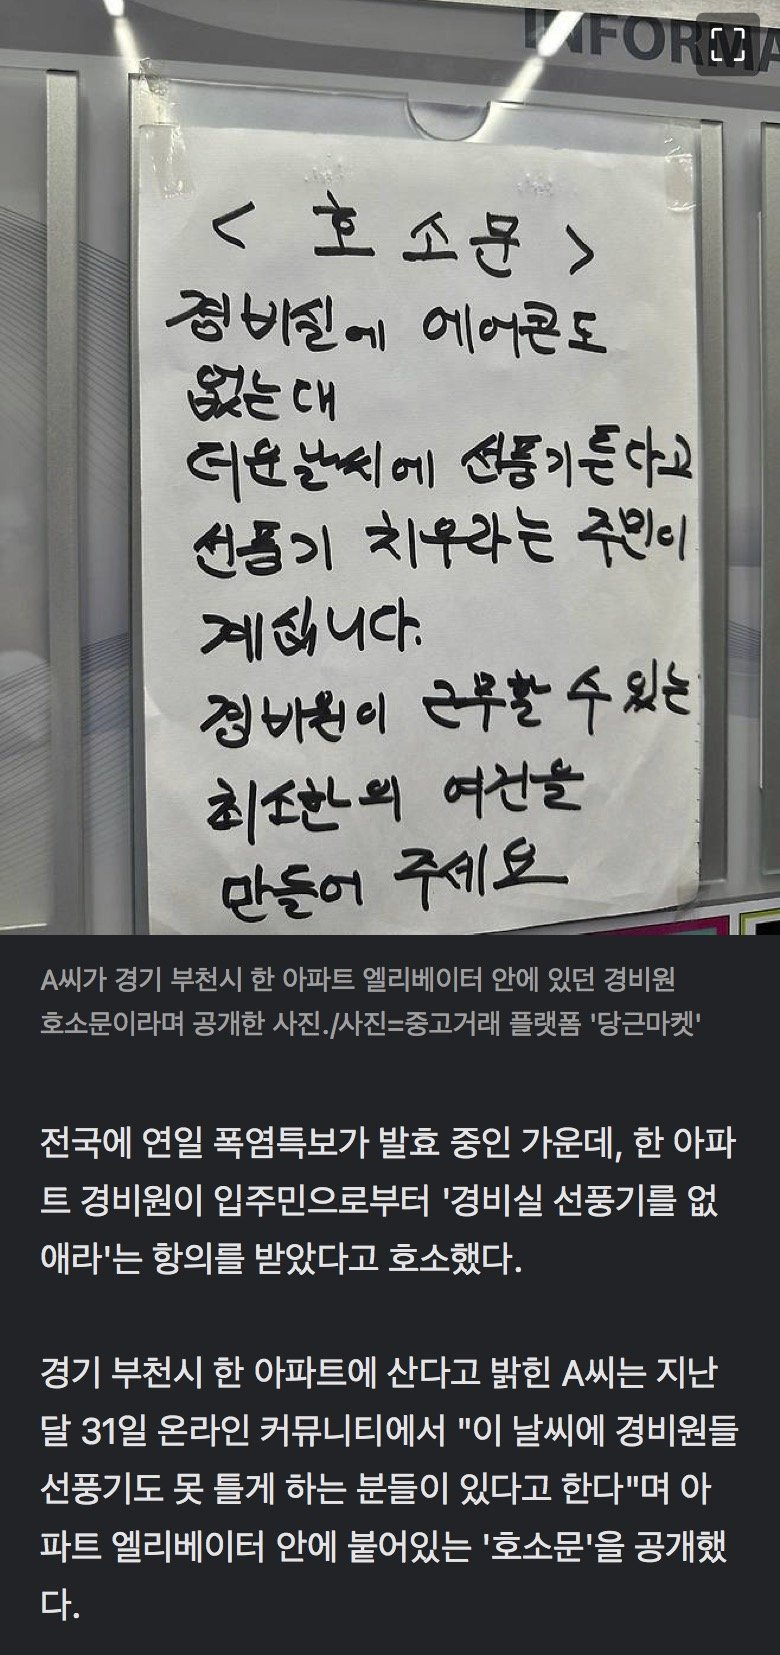 INFORMA
< 호 소 문 >
경비실에 에어콘도
없는대
더운날씨에 선풍기튼다고
선풍기 치우라는 주민이
계십니다.
경비원이 근무할 수 있는
최소한의 여건을
만들어 주세요
A씨가 경기 부천시 한 아파트 엘리베이터 안에 있던 경비원
호소문이라며 공개한 사진./사진=중고거래 플랫폼 '당근마켓'
전국에 연일 폭염특보가 발효 중인 가운데, 한 아파
트 경비원이 입주민으로부터 '경비실 선풍기를 없
애라'는 항의를 받았다고 호소했다.
경기 부천시 한 아파트에 산다고 밝힌 A씨는 지난
달 31일 온라인 커뮤니티에서 "이 날씨에 경비원들
선풍기도 못 틀게 하는 분들이 있다고 한다"며 아
파트 엘리베이터 안에 붙어있는 '호소문'을 공개했
다.